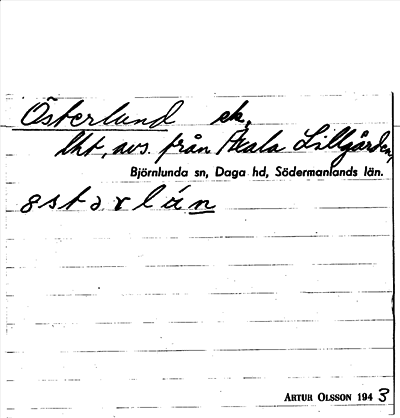 Österlund ek,
lht, avs. från Åkala Lillgården,
Björnlunda sn, Daga hd, Södermanlands län.
östərlún
ARTUR OLSSON 1943